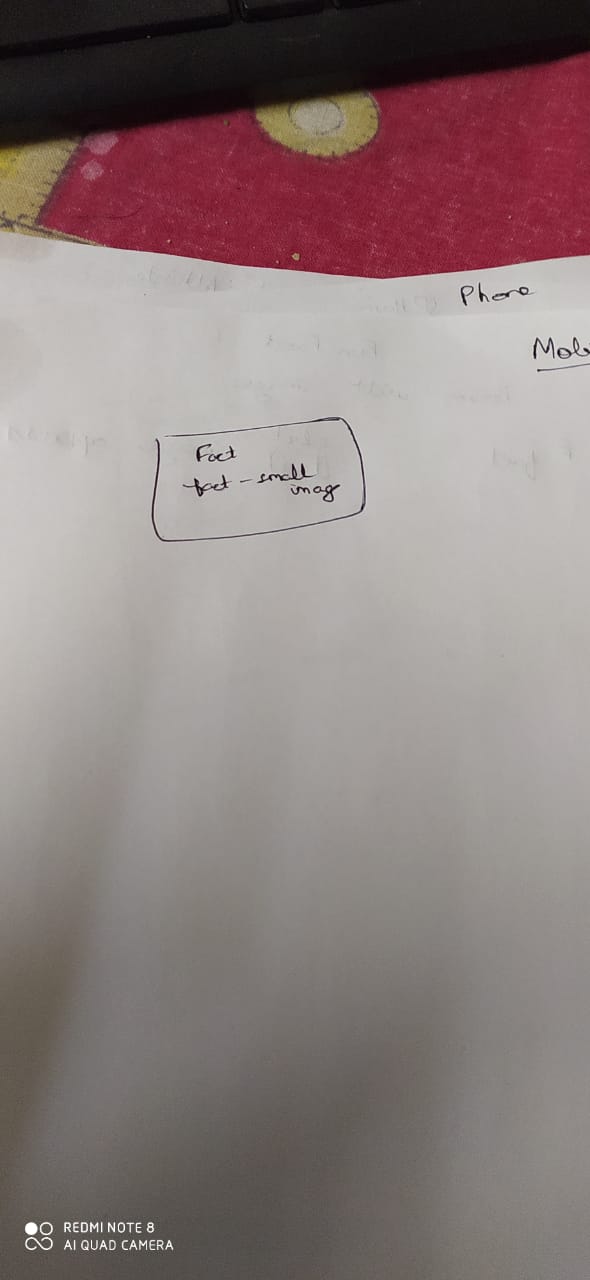 Phone
Mob
Fact
fact - small
imag
REDMI NOTE 8
AI QUAD CAMERA